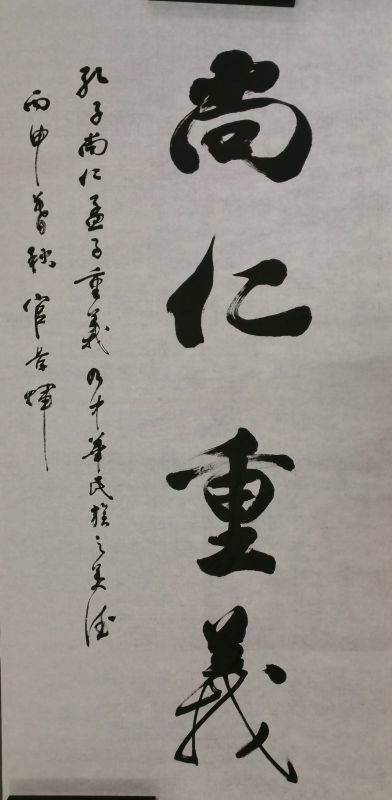 尚仁重義
孔子尚仁孟子重義乃中華民族之美德
丙申暮秋官岩輝